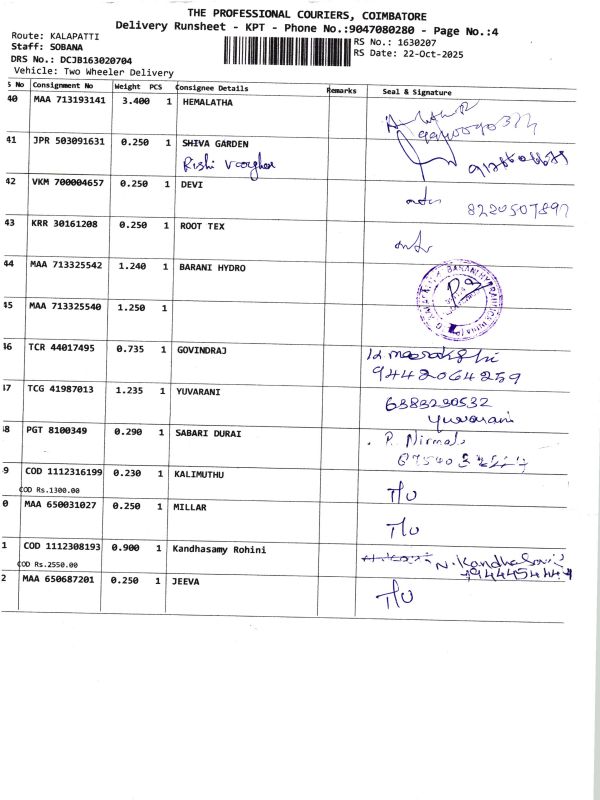 THE PROFESSIONAL COURIERS, COIMBATORE
Delivery Runsheet - KPT - Phone No.:9047080280 - Page No.:4
Route: KALAPATTI
Staff: SOBANA
DRS No.: DCJB163020704
Vehicle: Two Wheeler Delivery
RS No.: 1630207
RS Date: 22-Oct-2025
S No Consignment No Weight PCS Consignee Details Remarks Seal & Signature
40 MAA 713193141 3.400 1 HEMALATHA
41 JPR 503091631 0.250 1 SHIVA GARDEN
Rishi
42 VKM 700004657 0.250 1 DEVI
8220507897
43 KRR 30161208 0.250 1 ROOT TEX
44 MAA 713325542 1.240 1 BARANI HYDRO
45 MAA 713325540 1.250 1
46 TCR 44017495 0.735 1 GOVINDRAJ
9442064259
47 TCG 41987013 1.235 1 YUVARANI
6383230532
Yuvarani
48 PGT 8100349 0.290 1 SABARI DURAI
P. Nirmala
9 COD 1112316199 0.230 1 KALIMUTHU
COD Rs.1300.00
T/U
0 MAA 650031027 0.250 1 MILLAR
T/U
1 COD 1112308193 0.900 1 Kandhasamy Rohini
COD Rs.2550.00
N. Kandhasami
2 MAA 650687201 0.250 1 JEEVA
T/U